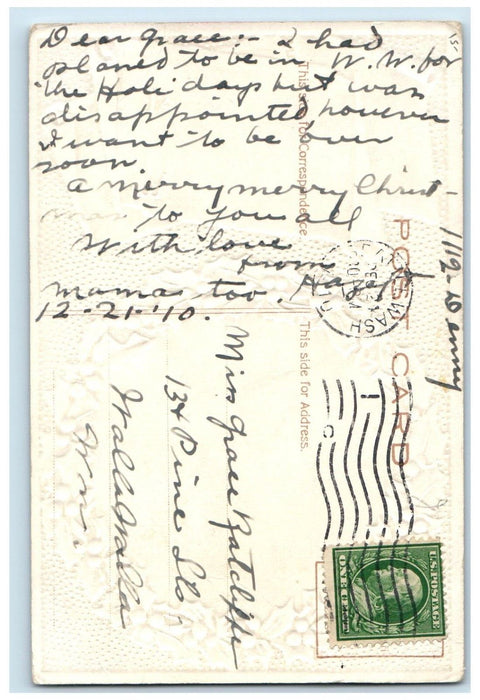 Dear Grace:- I had
planed to be in W.W. for
the Holidays but was
disappointed however
I want to be over
soon
A merry merry Christ-
mas to you all
With love
from
mamas too. Hazel
12-21-'10.
1112-Denny
This side for Correspondence
POST CARD
This side for Address.
WASH
Miss Grace Ratcliffe
134 Pine St
Walla Walla
Wn.
U.S. POSTAGE
ONE CENT